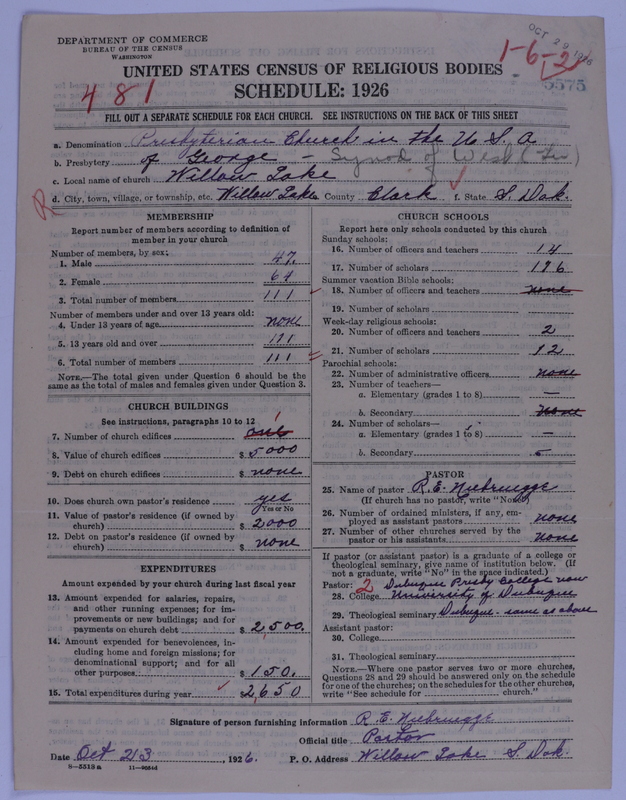 DEPARTMENT OF COMMERCE
BUREAU OF THE CENSUS
WASHINGTON
OCT 29 1926
1-6-21
5575
UNITED STATES CENSUS OF RELIGIOUS BODIES
481
SCHEDULE: 1926
FILL OUT A SEPARATE SCHEDULE FOR EACH CHURCH. SEE INSTRUCTIONS ON THE BACK OF THIS SHEET
a. Denomination Presbyterian Church in the U.S.A.
b. Presbytery of George - Synod of West (
c. Local name of church Willow Lake
d. City, town, village, or township, etc. Willow Lake County Clark f. State S. Dak.
R
MEMBERSHIP
Report number of members according to definition of
member in your church
Number of members, by sex:
1. Male 47
2. Female 64
3. Total number of members 111
Number of members under and over 13 years old:
4. Under 13 years of age none
5. 13 years old and over 111
6. Total number of members 111
NOTE.—The total given under Question 6 should be
same as the total of males and females given under Question 3.
CHURCH BUILDINGS
See instructions, paragraphs 10 to 12
7. Number of church edifices one 1
8. Value of church edifices $ 5000
9. Debt on church edifices $ none
10. Does church own pastor's residence yes
Yes or No
11. Value of pastor's residence (if owned by
church) $ 2000
12. Debt on pastor's residence (if owned by
church) $ none
EXPENDITURES
Amount expended by your church during last fiscal year
13. Amount expended for salaries, repairs,
and other running expenses; for im-
provements or new buildings; and for
payments on church debt $ 2,500.
14. Amount expended for benevolences, in-
cluding home and foreign missions; for
denominational support; and for all
other purposes $ 150.
15. Total expenditures during year $ 2,650
CHURCH SCHOOLS
Report here only schools conducted by this church
Sunday schools:
16. Number of officers and teachers 14
17. Number of scholars 196
Summer vacation Bible schools:
18. Number of officers and teachers none
19. Number of scholars
Week-day religious schools:
20. Number of officers and teachers 2
21. Number of scholars 12
Parochial schools:
22. Number of administrative officers none
23. Number of teachers—
a. Elementary (grades 1 to 8) —
b. Secondary none
24. Number of scholars—
a. Elementary (grades 1 to 8) —
b. Secondary
PASTOR
25. Name of pastor R. E. Niebruegge
(If church has no pastor, write "None")
26. Number of ordained ministers, if any, em-
ployed as assistant pastors none
27. Number of other churches served by the
pastor or his assistants none
If pastor (or assistant pastor) is a graduate of a college or
theological seminary, give name of institution below. (If
not a graduate, write "No" in the space indicated.)
Pastor: 2 Dubuque Presby College now
28. College University of Dubuque
29. Theological seminary Dubuque - same as above
Assistant pastor:
30. College
31. Theological seminary
NOTE.—Where one pastor serves two or more churches,
Questions 28 and 29 should be answered only on the schedule
for one of the churches; on the schedules for the other churches,
write "See schedule for church."
Signature of person furnishing information R. E. Niebruegge
Official title Pastor
Date Oct 23, 1926. P. O. Address Willow Lake S. Dak.
8-5513 a